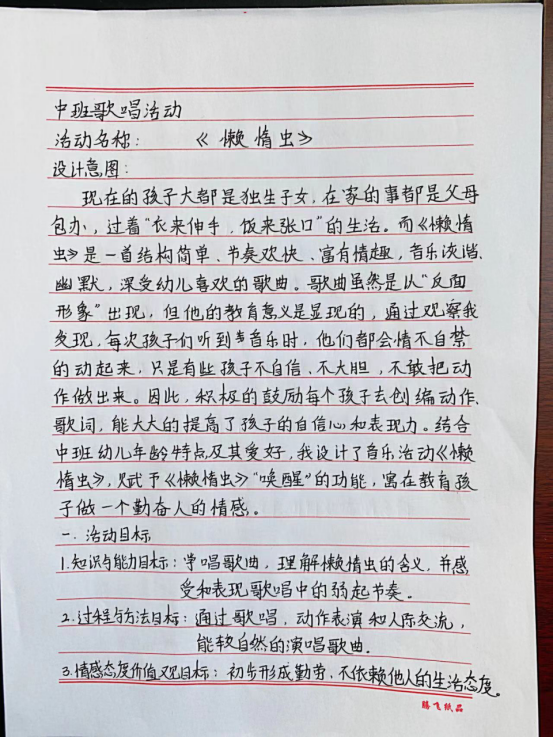 中班歌唱活动
活动名称：《懒惰虫》
设计意图：
现在的孩子大都是独生子女，在家的事都是父母
包办，过着“衣来伸手，饭来张口”的生活。而《懒惰
虫》是一首结构简单、节奏欢快、富有情趣，音乐诙谐、
幽默，深受幼儿喜欢的歌曲。歌曲虽然是从“反面
形象”出现，但他的教育意义是显现的，通过观察我
发现，每次孩子们听到音乐时，他们都会情不自禁
的动起来，只是有些孩子不自信、不大胆，不敢把动
作做出来。因此，积极的鼓励每个孩子去创编动作、
歌词，能大大的提高了孩子的自信心和表现力。结合
中班幼儿年龄特点及其爱好，我设计了音乐活动《懒
惰虫》，赋予《懒惰虫》“唤醒”的功能，寓在教育孩
子做一个勤奋人的情感。
一．活动目标
1.知识与能力目标：学唱歌曲，理解懒惰虫的含义，并感
受和表现歌唱中的弱起节奏。
2.过程与方法目标：通过歌唱，动作表演和人际交流，
能较自然的演唱歌曲．
3.情感态度价值观目标：初步形成勤劳、不依赖他人的生活态度。
腾飞纸品